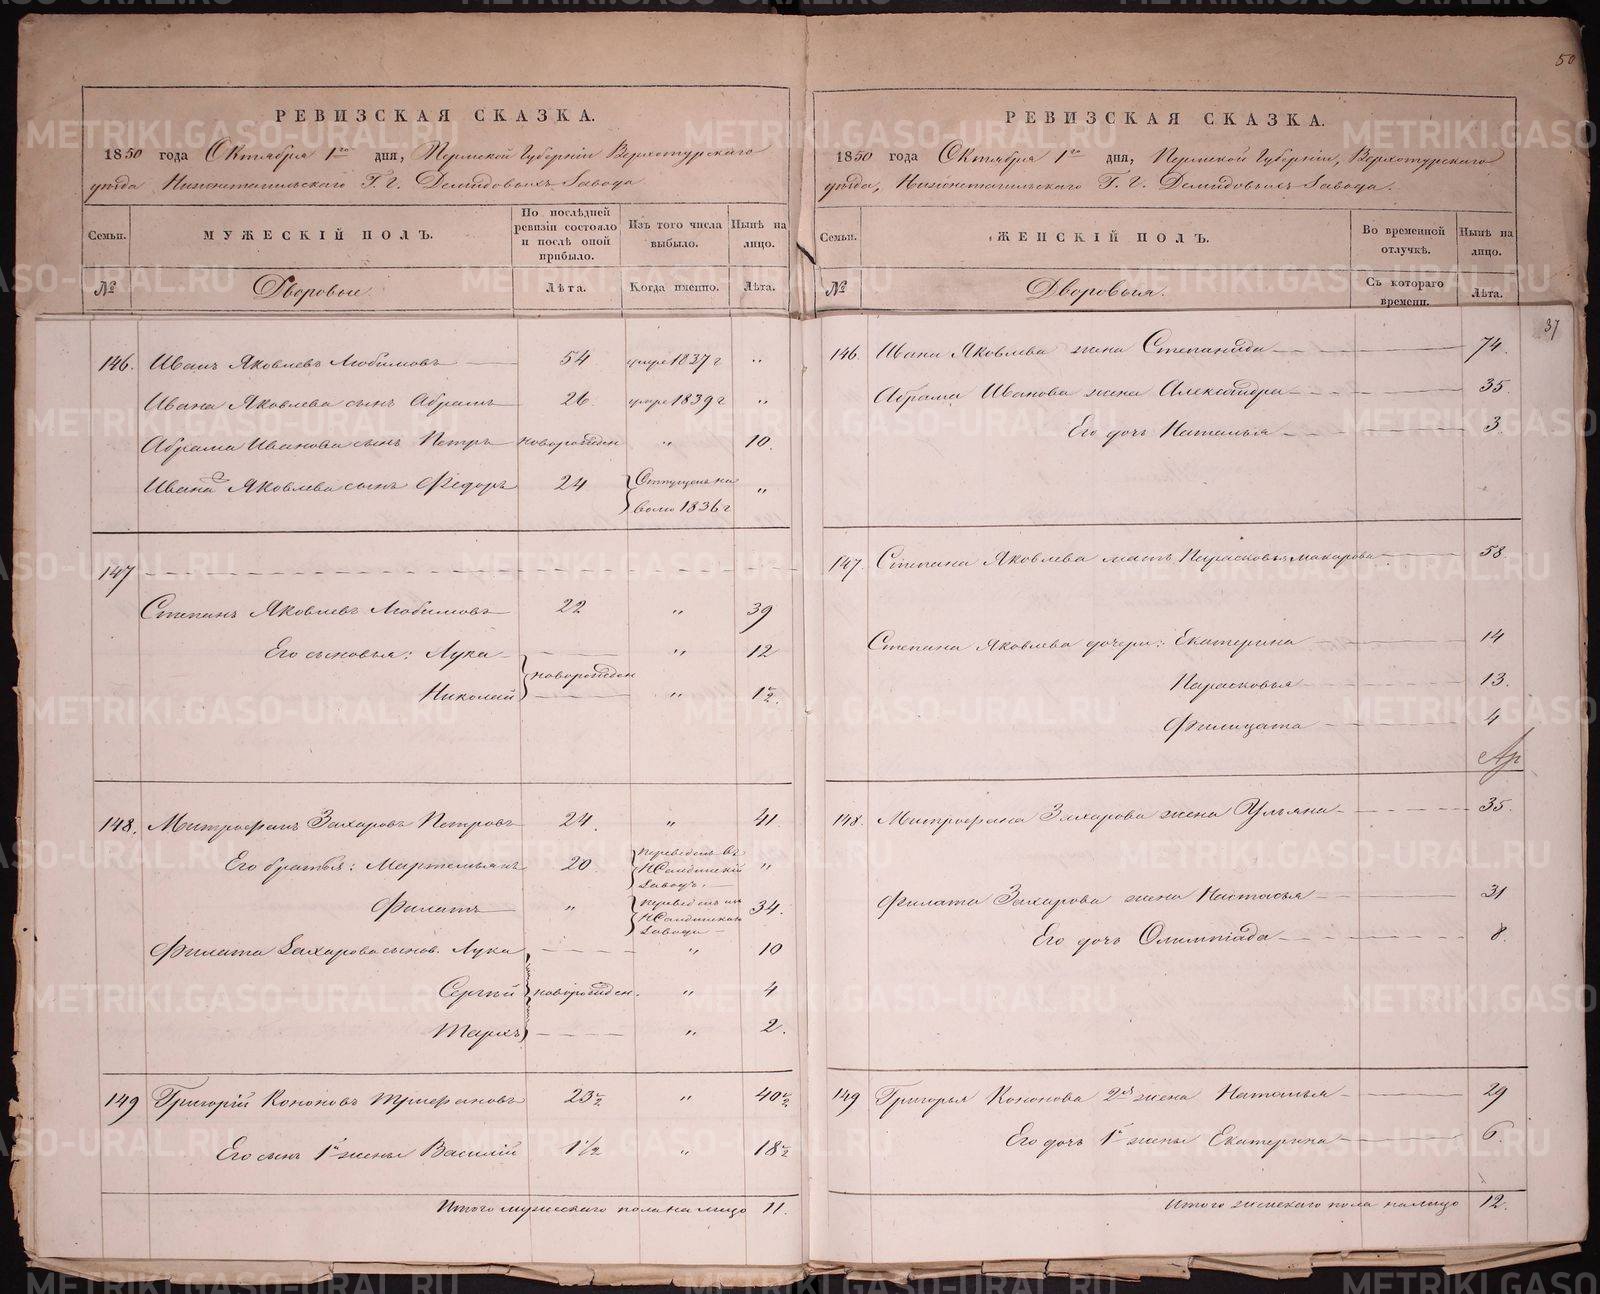 50
РЕВИЗСКАЯ СКАЗКА.
1850 года Октября 1го дня, Пермской Губернии Верхотурскаго
уѣзда Нижнетагильскаго Г. г. Демидовыхъ Завода
Семьи.
МУЖЕСКІЙ ПОЛЪ.
По послѣдней ревизіи состояло и послѣ оной прибыло.
Изъ того числа выбыло.
Нынѣ на лицо.
№
Дворовые
Лѣта.
Когда именно.
Лѣта.
146. Иванъ Яковлевъ Любимовъ 54 умре 1837 г "
Ивана Яковлева сынъ Абрамъ 26 умре 1839 г "
Абрама Иванова сынъ Петръ новорожден " 10.
Ивана Яковлева сынъ Ѳедоръ 24 Отпущенъ на волю 1836 г "
147
Степанъ Яковлевъ Любимовъ 22 " 39
Его сыновья: Лука " 12
новорожден
Николай " 1½.
148. Митрофанъ Захаровъ Петровъ 24. " 41
Его братья: Мартемьянъ 20 Переведенъ въ НСалдинскій Заводъ. "
Филатъ " Переведенъ из НСалдинскаго Завода 34.
Филата Захарова сынов. Лука " 10
Сергѣй новорожден. " 4
Маркъ " 2.
149 Григорій Кононовъ Трифановъ 23½ " 40½
Его сынъ 1й жены Василій 1½ " 18½
Итого мужескаго пола на лицо 11.
РЕВИЗСКАЯ СКАЗКА.
1850 года Октября 1го дня, Пермской Губерніи, Верхотурскаго
уѣзда, Нижнетагильскаго Г. г. Демидовыхъ Завода.
Семьи.
ЖЕНСКІЙ ПОЛЪ.
Во временной отлучкѣ.
Нынѣ на лицо.
№
Дворовыя.
Съ котораго времени.
Лѣта.
37
146. Ивана Яковлева жена Степанида 74.
Абрама Иванова жена Александра 35
Его дочь Наталья 3.
147. Степана Яковлева мать Парасковья Макарова 58.
Степана Яковлева дочери: Екатерина 14
Парасковья 13.
Филицата 4
148. Митрофана Захарова жена Ульяна 35.
Филата Захарова жена Настасья 31
Его дочь Олимпіада 8.
149 Григорья Кононова 2я жена Наталья 29
Его дочь 1й жены Екатерина 6.
Итого женскаго пола на лицо 12.
METRIKI.GASO-URAL.RU